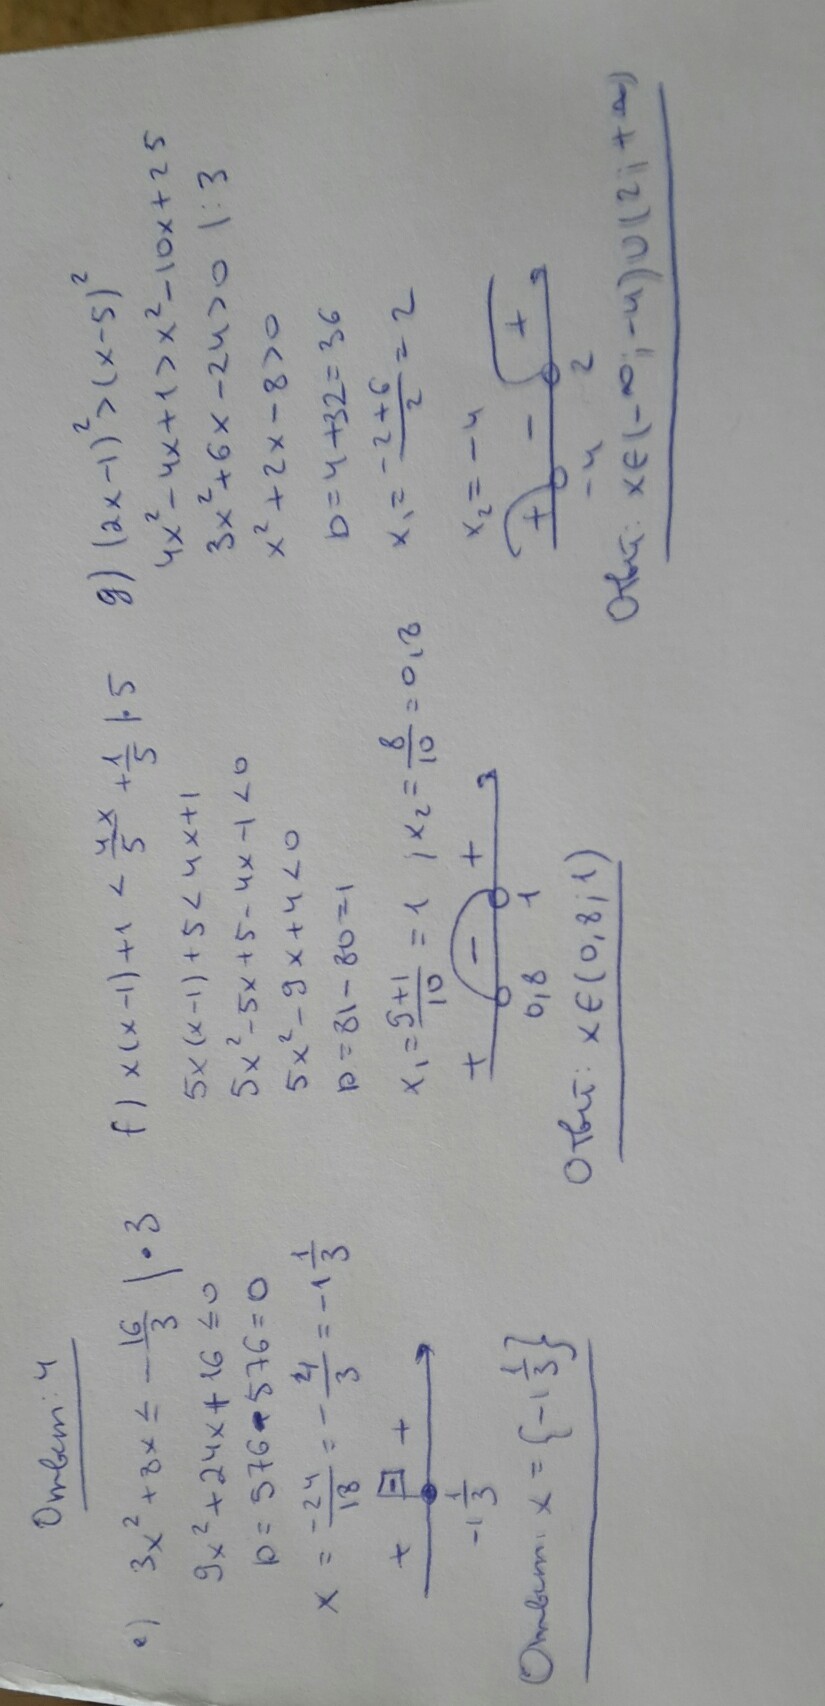 Ответ: 4
e) 3x² + 8x ≤ -16/3 | · 3
9x² + 24x + 16 ≤ 0
D = 576 - 576 = 0
x = -24/18 = -4/3 = -1 1/3
+ - +
-1 1/3
Ответ: x = {-1 1/3}
f) x(x-1)+1 < 4x/5 + 1/5 | · 5
5x(x-1)+5 < 4x+1
5x²-5x+5-4x-1<0
5x²-9x+4<0
D = 81-80=1
x₁ = 9+1/10 = 1 , x₂ = 8/10 = 0,8
+ - +
0,8 1
Отвт: x∈(0,8;1)
g) (2x-1)² > (x-5)²
4x²-4x+1 > x²-10x+25
3x²+6x-24>0 | : 3
x²+2x-8>0
D = 4+32=36
x₁ = -2+6/2 = 2
x₂ = -4
+ - +
-4 2
Отвт: x∈(-∞;-4)∪(2;+∞)